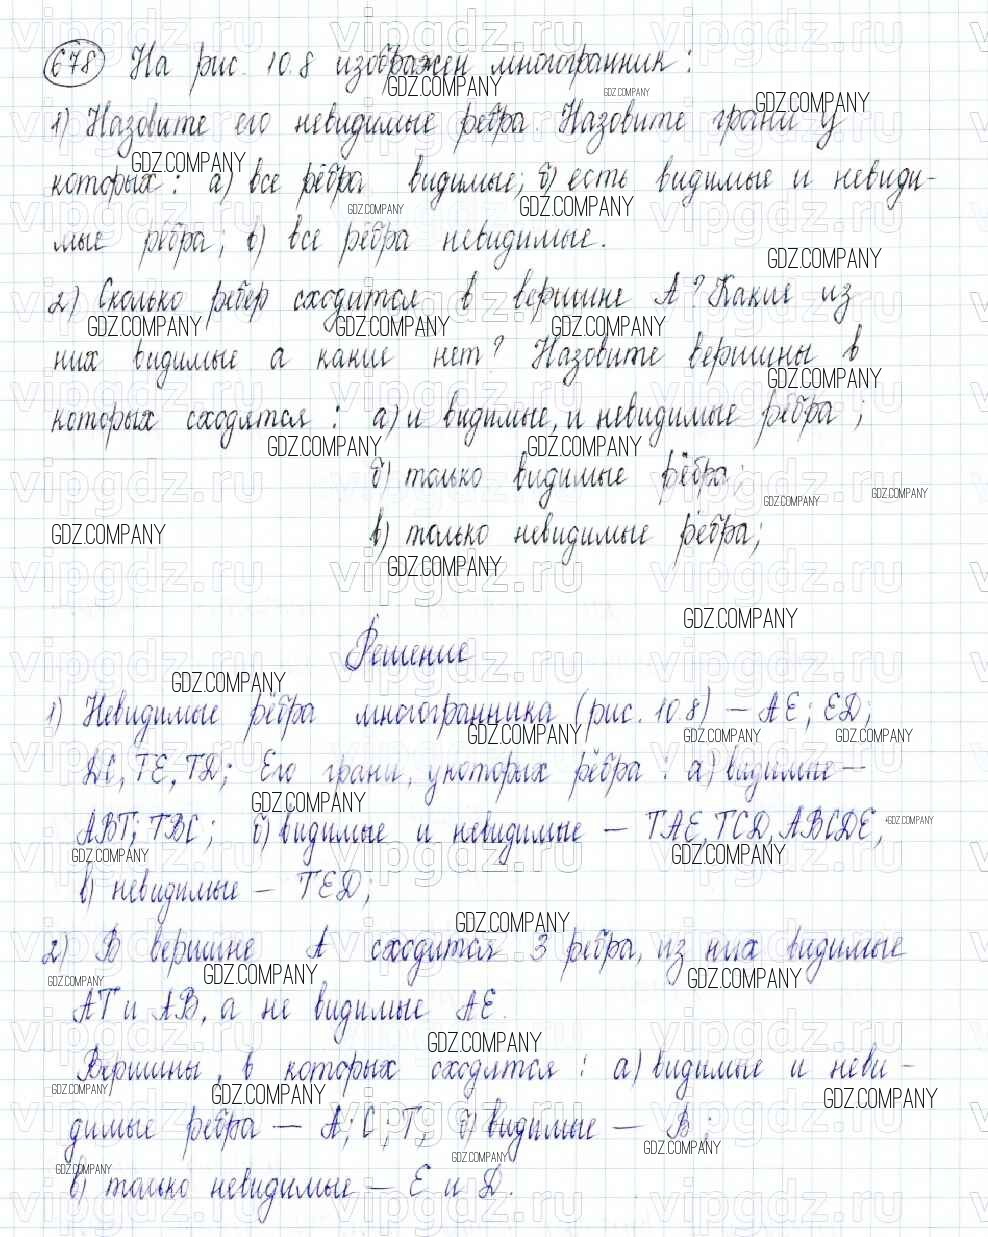 678 На рис. 10.8 изображен многогранник:
1) Назовите его невидимые ребра. Назовите грани у
которых: а) все рёбра видимые; б) есть видимые и невиди-
мые рёбра; в) все рёбра невидимые.
2) Сколько ребер сходится в вершине А? Какие из
них видимые а какие нет? Назовите вершины в
которых сходятся: а) и видимые, и невидимые рёбра;
б) только видимые рёбра;
в) только невидимые рёбра;
Решение
1) Невидимые рёбра многогранника (рис. 10.8) — AE; ED;
DC, TE, TD; Его грани, у которых рёбра: а) видимые —
ABT; TBC; б) видимые и невидимые — TAE, TCD, ABCDE,
в) невидимые — TED;
2) В вершине А сходится 3 ребра, из них видимые
AT и AB, а не видимые AE.
Вершины, в которых сходятся: а) видимые и неви-
димые ребра — A; C; T, б) видимые — B;
в) только невидимые — E и D.
GDZ.COMPANY
vipgdz.ru